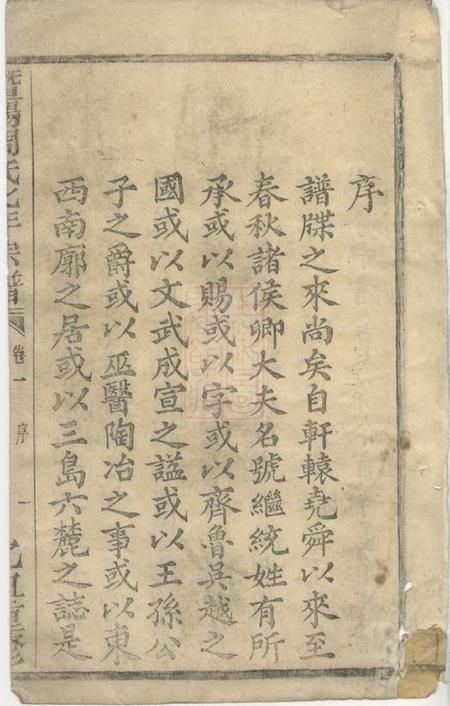 序
譜牒之來尚矣自軒轅堯舜以來至
春秋諸侯卿大夫名號繼統姓有所
承或以賜或以字或以齊魯吳越之
國或以文武成宣之謚或以王孫公
子之爵或以巫醫陶冶之事或以東
西南廓之居或以三島六蔍之誌是
暨陽周氏七年宗譜 卷一 序 一